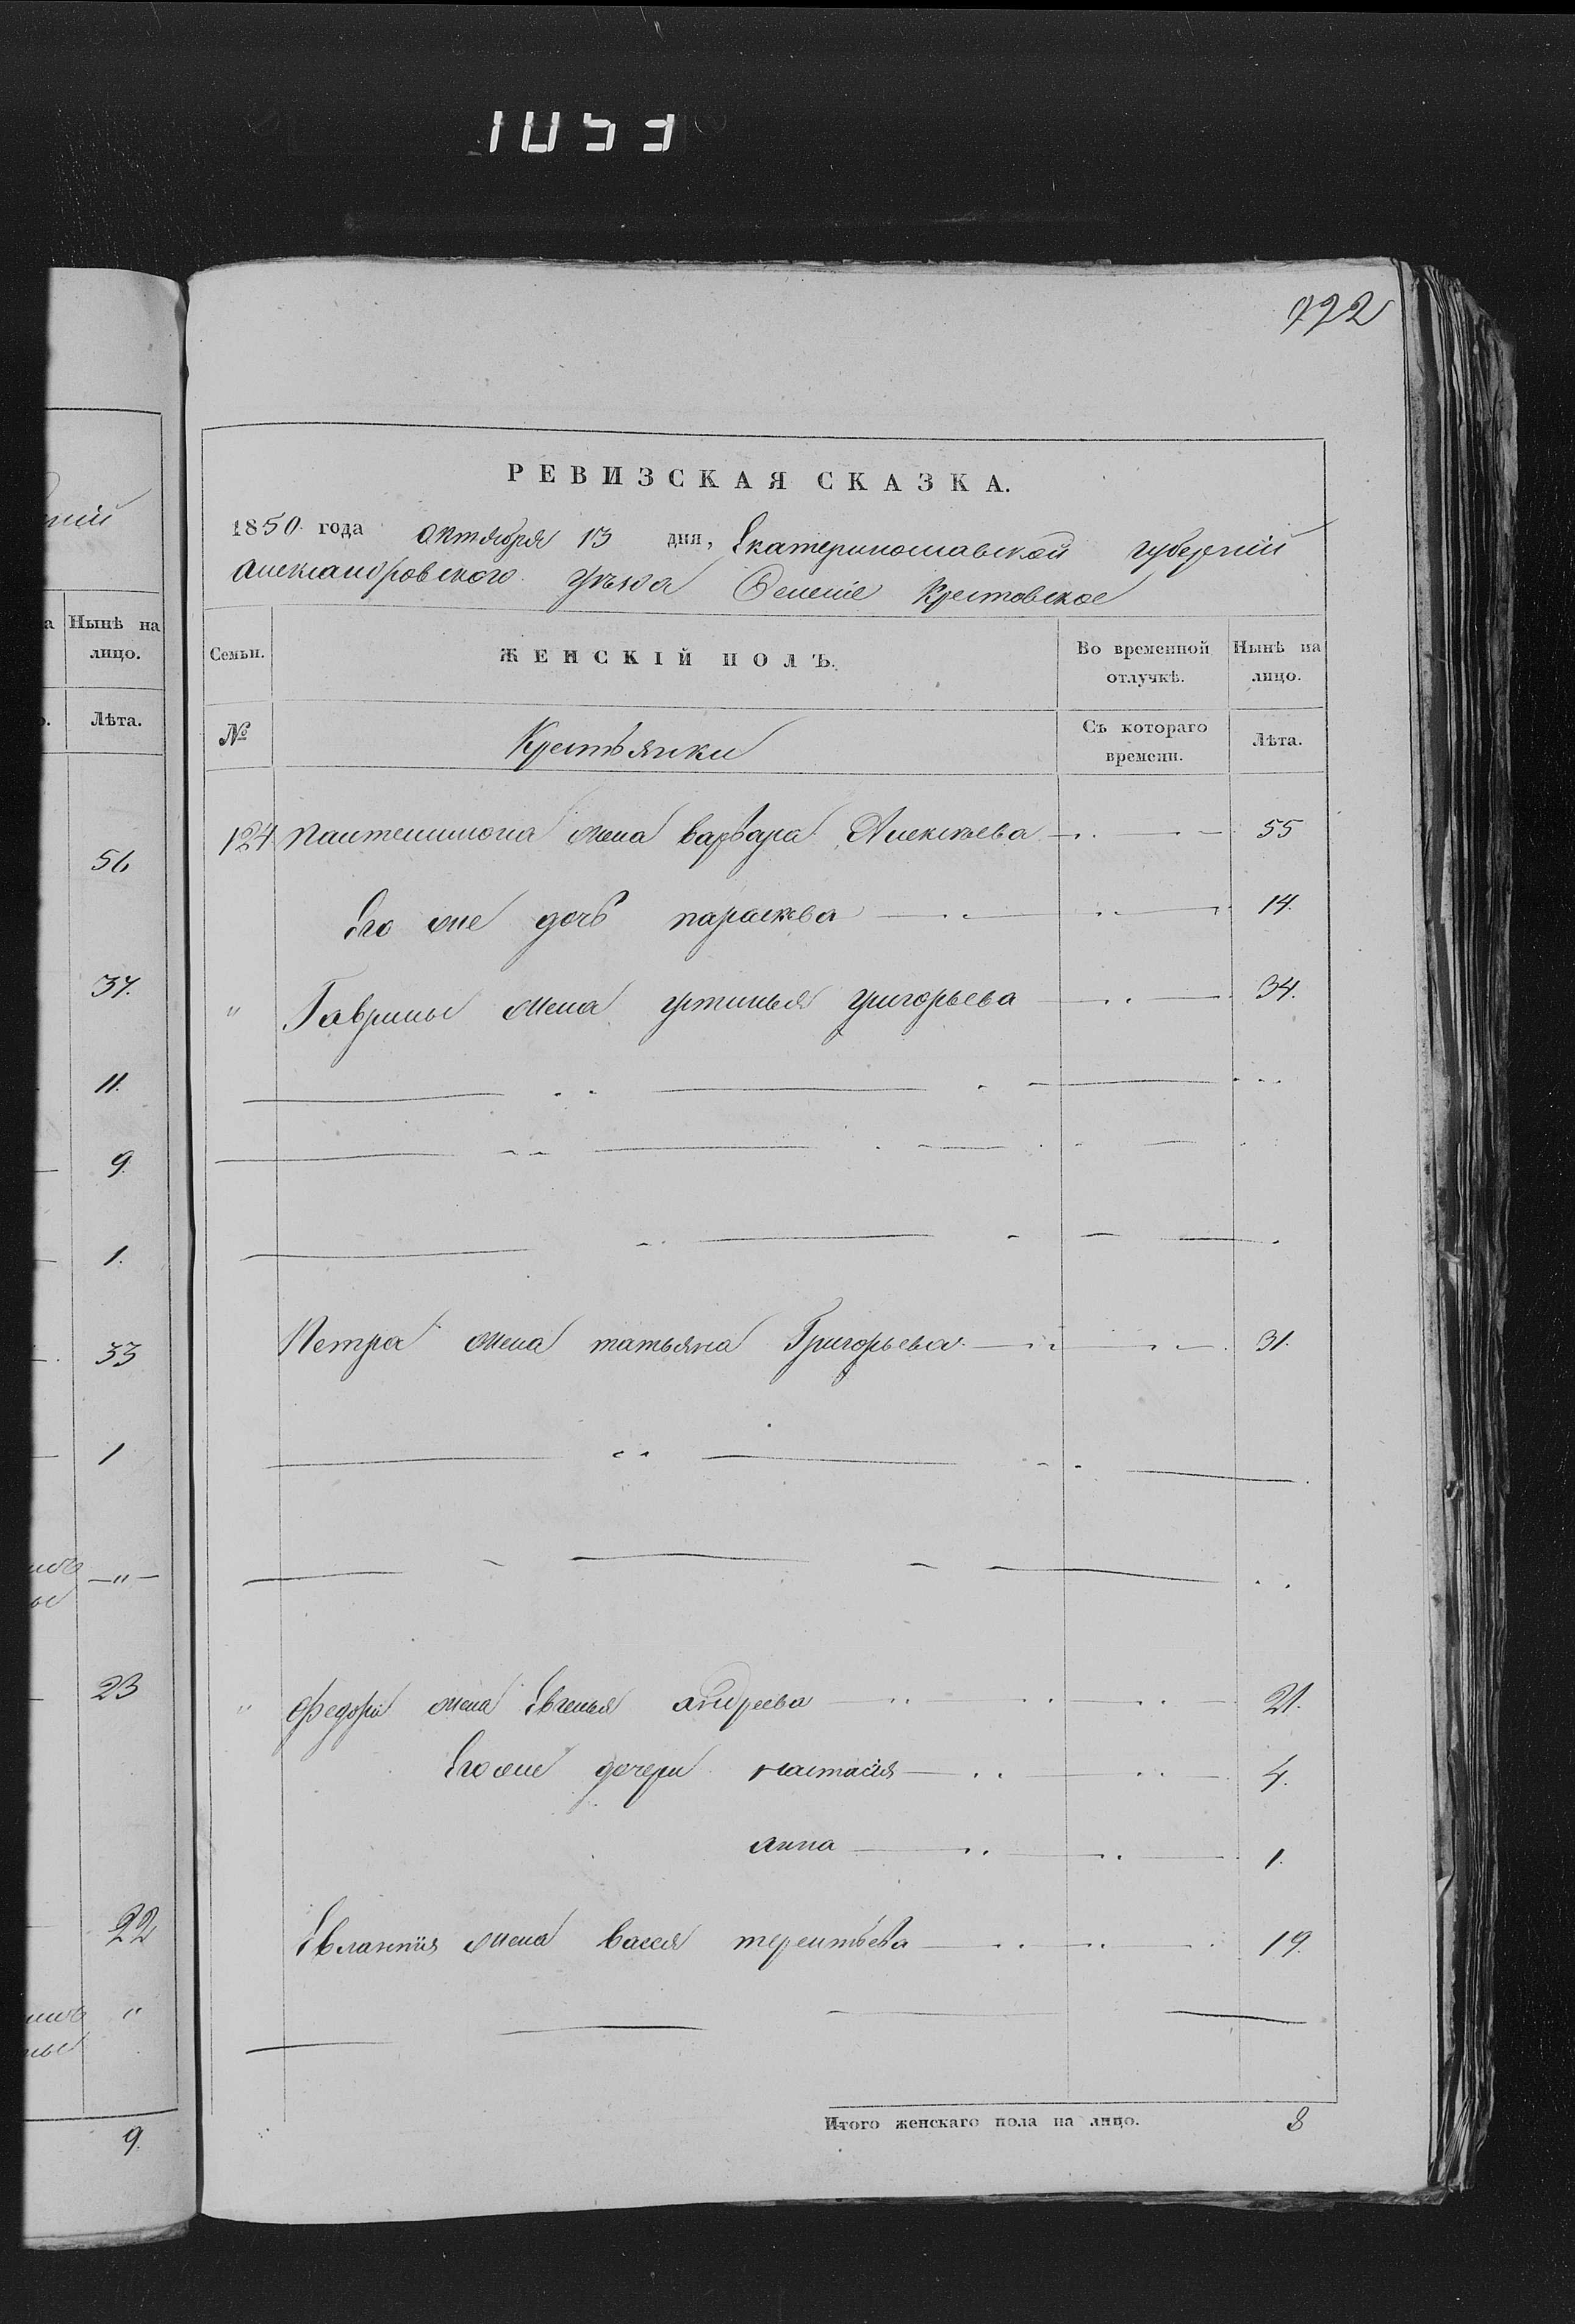 1053
722
РЕВИЗСКАЯ СКАЗКА.
1850 года Октября 13 дня, Екатеринославской губерній
Александровского уѣзда Селеніе Крестовское
Семьи.
ЖЕНСКІЙ ПОЛЪ.
Во временной отлучкѣ.
Нынѣ на лицо.
№
Крестьянки
Съ котораго времени.
Лѣта.
124 Пантелимона жена варвара Алексѣева 55
Его же дочь параскева 14.
" Гаврилы жена устинья григорьева 34.
Петра жена татьяна Григорьева 31.
" Федора жена Евгенья андреева 21.
Его же дочери настасія 4.
анна 1.
Евлампія жена васса терентьева 19.
Итого женскаго пола на лицо. 8
Нынѣ на лицо.
Лѣта.
56
37.
11.
9.
1.
33
1
"
23
22
"
9.